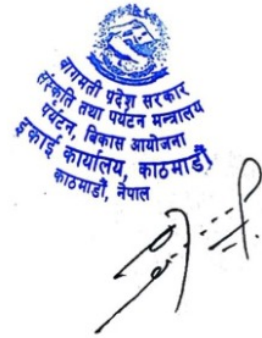 वागमती प्रदेश सरकार
संस्कृति तथा पर्यटन मन्त्रालय
पर्यटन, बिकास आयोजना
इकाई कार्यालय, काठमाडौं
काठमाडौं, नेपाल